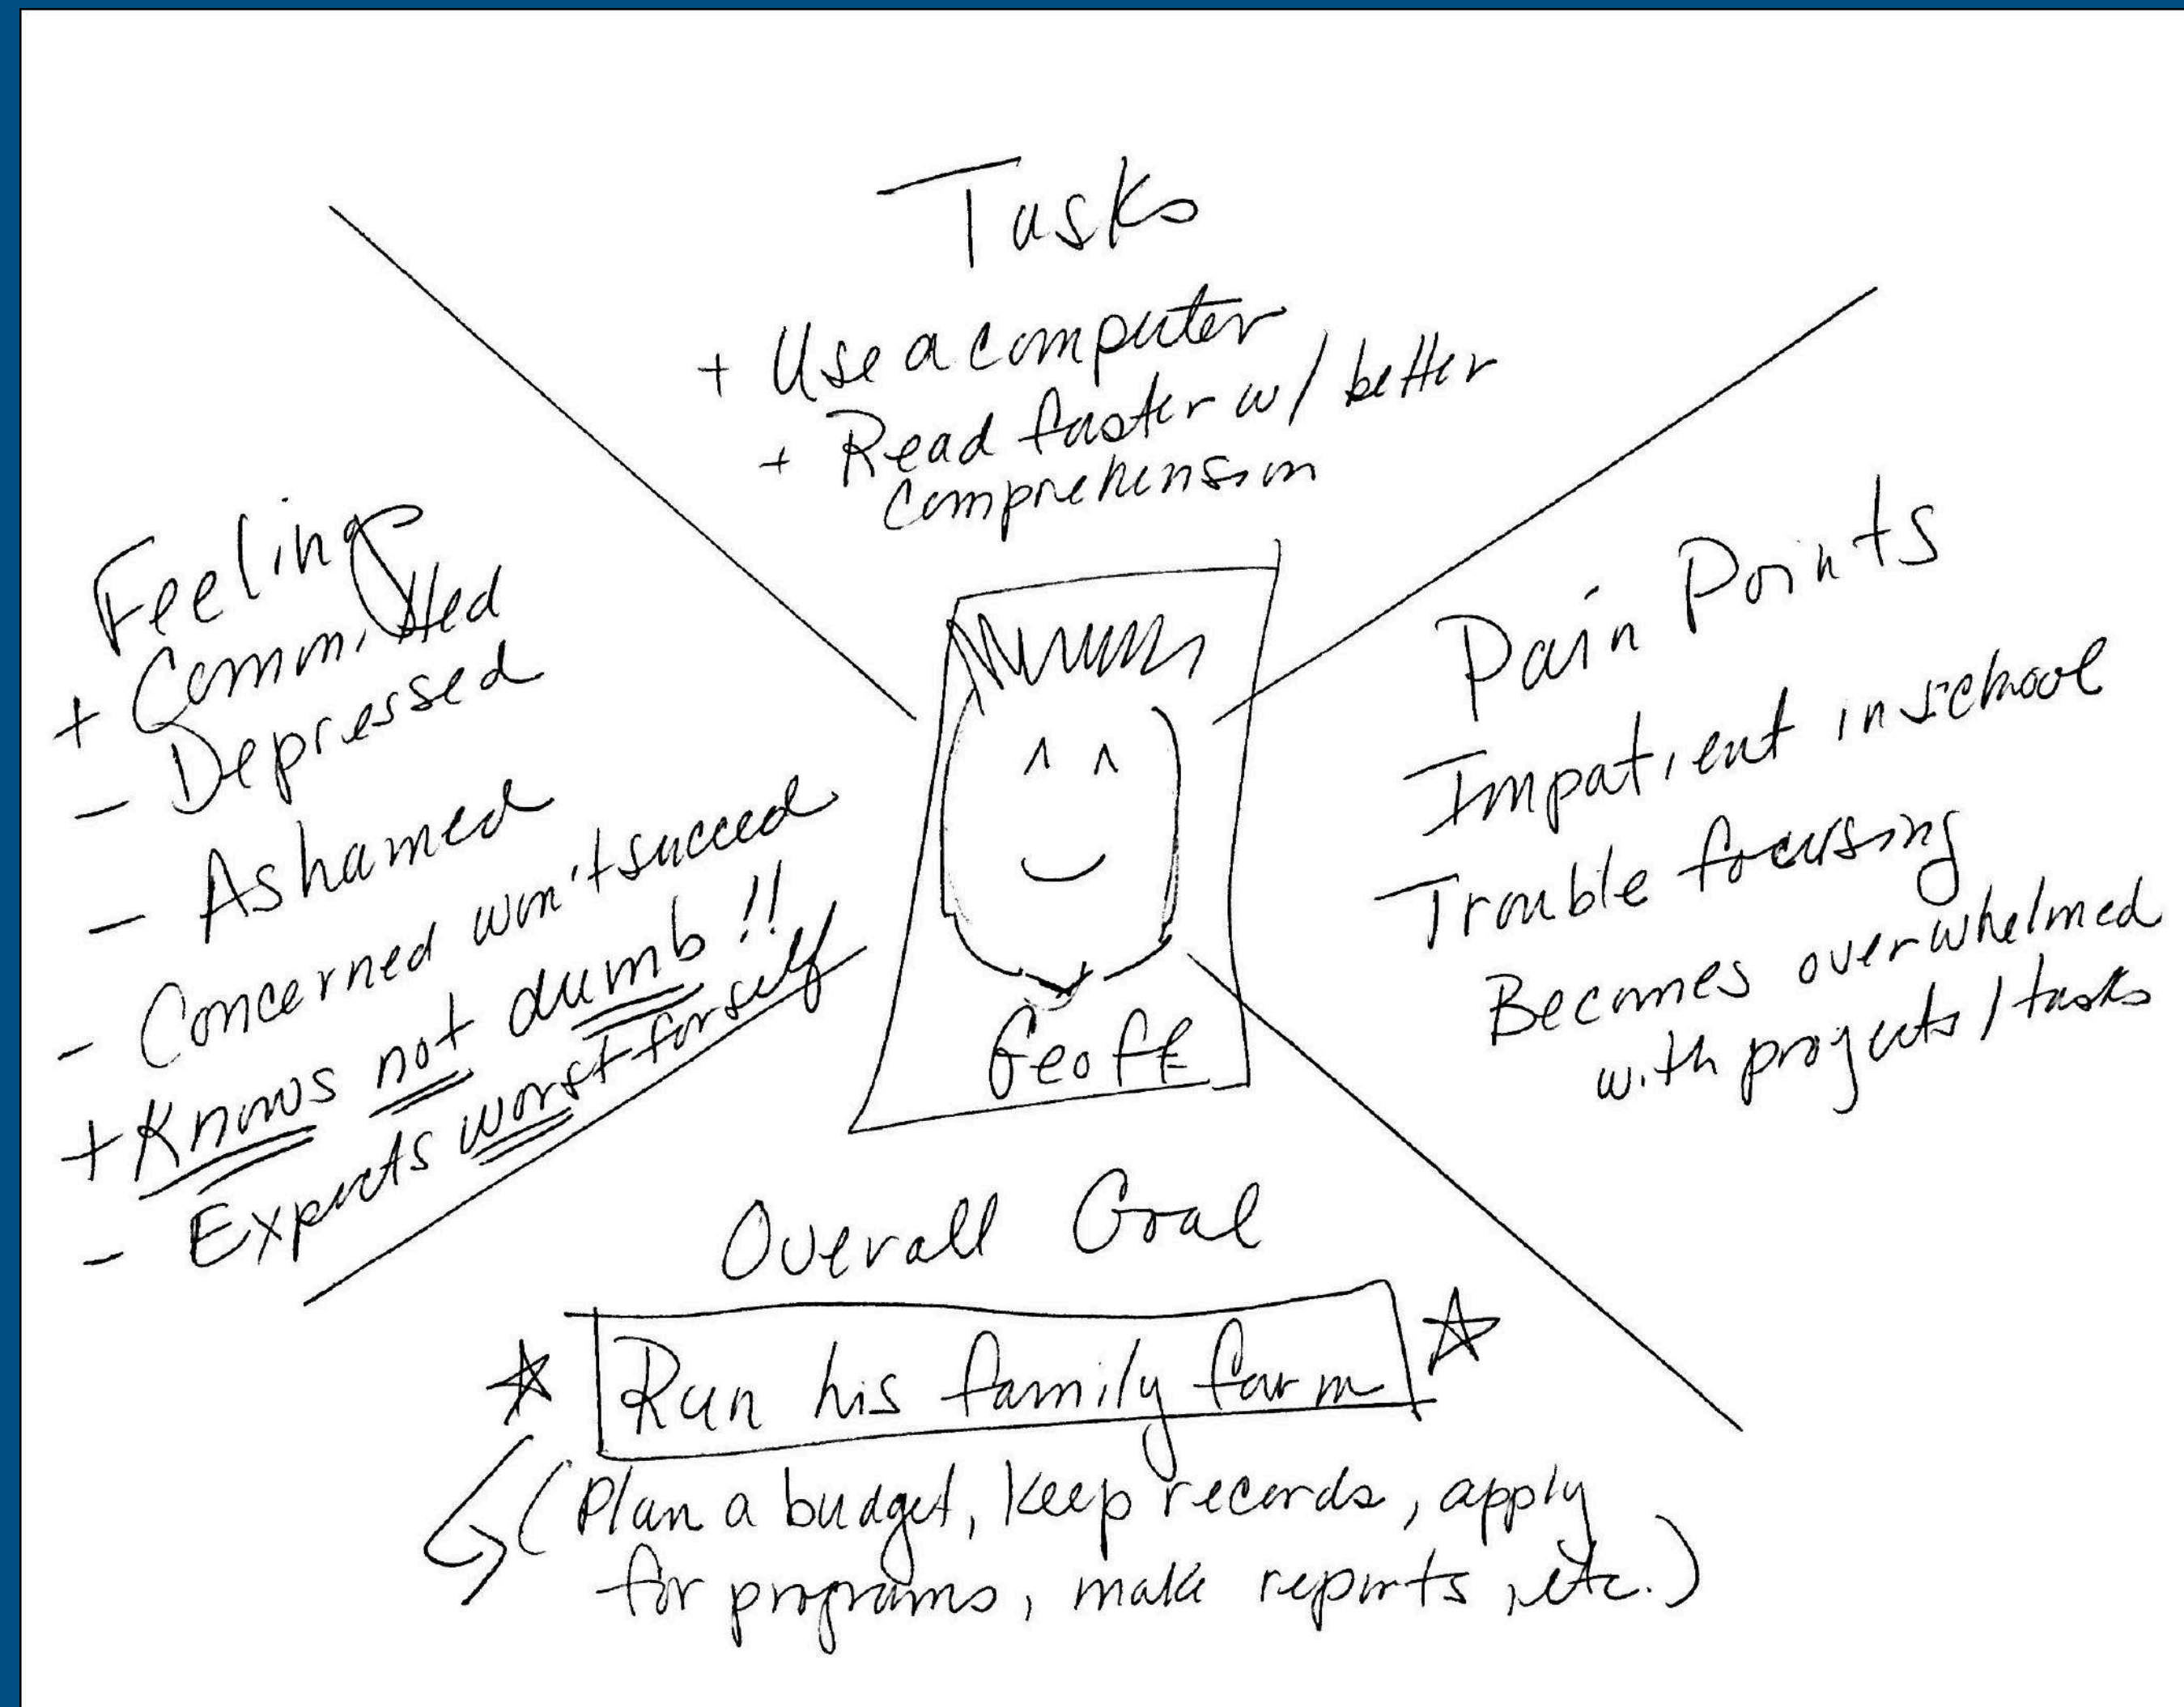 Tasks
+ Use a computer
+ Read faster w/ better
comprehension
Feelings
+ Committed
- Depressed
- Ashamed
- Concerned won't succeed
+ Knows not dumb!!
- Expects worst for self
Geoff
Pain Points
Impatient in school
Trouble focusing
Becomes overwhelmed
with projects/tasks
Overall Goal
Run his family farm
(Plan a budget, keep records, apply
for programs, make reports, etc.)